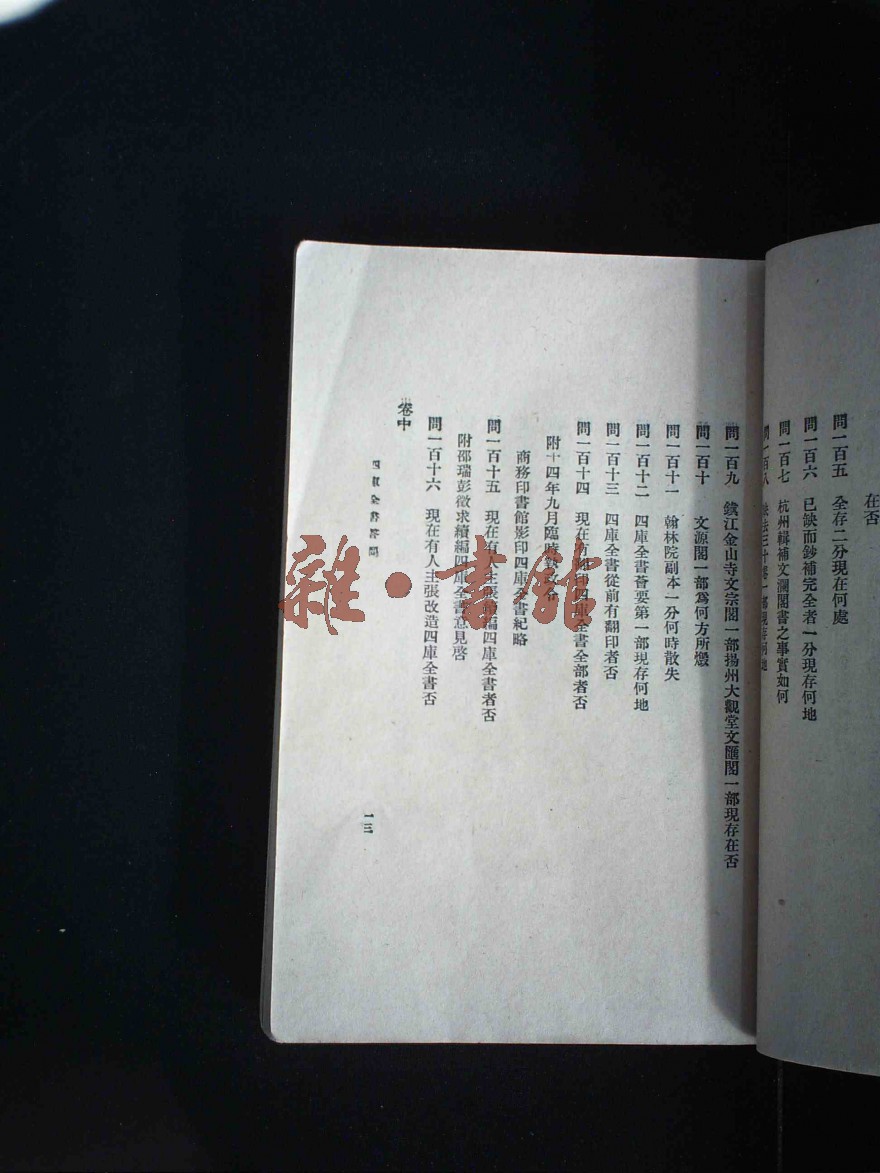 在否
問一百五　全存二分現在何處
問一百六　已缺而鈔補完全者一分現存何地
問一百七　杭州輯補文瀾閣書之事實如何
問一百八
問一百九　鎮江金山寺文宗閣一部揚州大觀堂文匯閣一部現存在否
問一百十　文源閣一部爲何方所燬
問一百十一　翰林院副本一分何時散失
問一百十二　四庫全書薈要第一部現存何地
問一百十三　四庫全書從前有翻印者否
問一百十四　現在有影印四庫全書全部者否
附十四年九月臨時執政令
商務印書館影印四庫全書紀略
問一百十五　現在有人主張續編四庫全書者否
附邵瑞彭徵求續編四庫全書意見啓
問一百十六　現在有人主張改造四庫全書否
卷中
四庫全書答問
一三
雜·書館